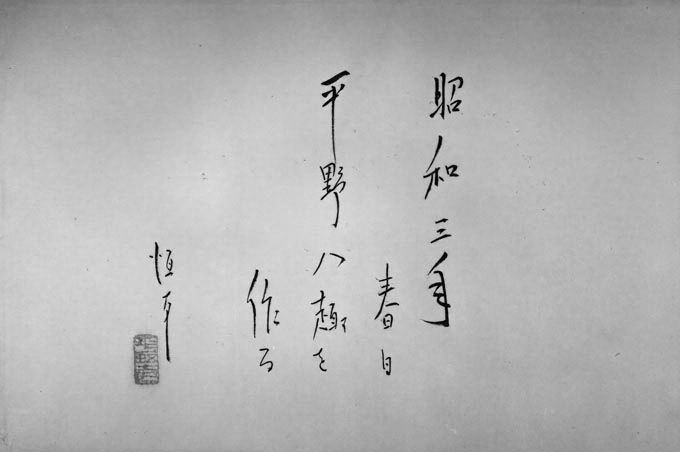 昭和三年
春日
平野八趣を
作る
恒友